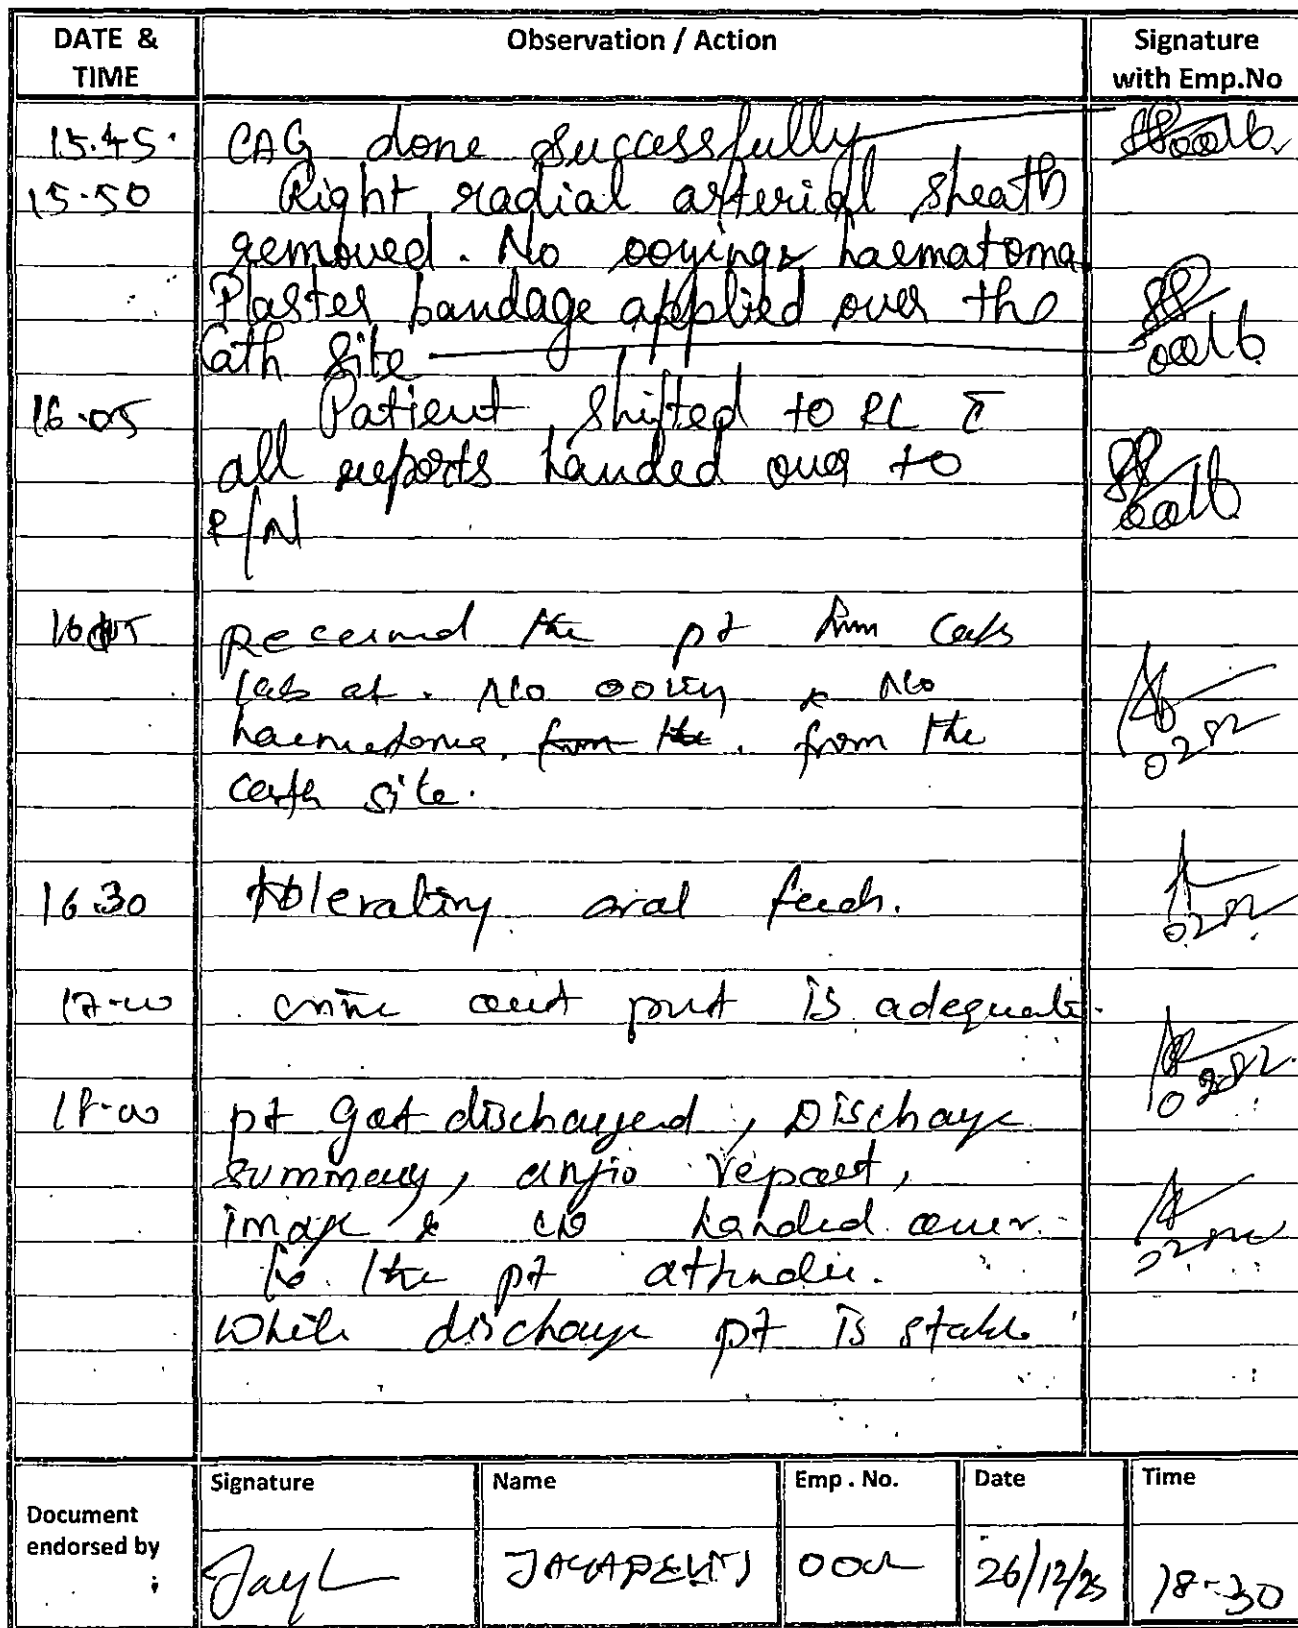 DATE & TIME
Observation / Action
Signature with Emp.No
15.45. CAG done successfully
15.50 Right radial arterial sheath
removed. No ooyings haematoma
Plaster bandage applied over the
Cath Site
16.05 Patient shifted to RL c̄
all reports handed over to
R/N
Received the pt from Cath
lab at. No oozing & No
haematoma. from the. from the
cath site.
16.30 tolerating oral feeds.
17-00 urine out put is adequate.
18-00 pt got discharged, Discharge
summary, angio report,
image & CD handed over
to the pt attender.
while discharge pt is stable
Document endorsed by
Signature
Name
Emp . No.
Date
Time
26/12/25
18-30